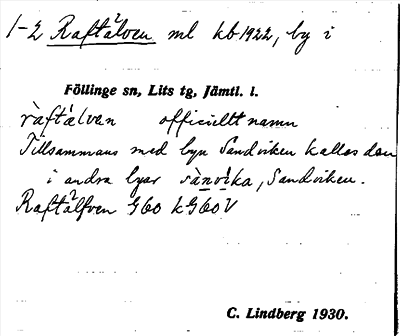 1-2 Raftälven ml kb 1922, by i
Föllinge sn, Lits tg, Jämtl. l.
ràftǽlvan officiellt namn
Tillsammans med byn Sandviken kallas den
i andra byar sànvìka, Sandviken.
Raftälfven G60 kG60V
C. Lindberg 1930.